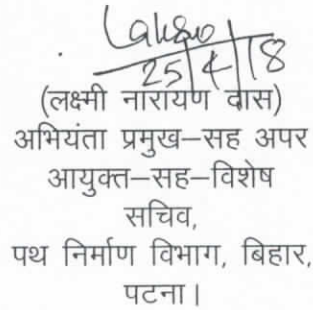 25/4/18
(लक्ष्मी नारायण दास)
अभियंता प्रमुख–सह अपर
आयुक्त–सह–विशेष
सचिव,
पथ निर्माण विभाग, बिहार,
पटना।